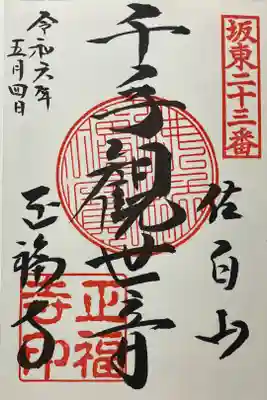 坂東二十三番
佐白山
千手觀世音
正福寺
令和六年
五月四日
正福
寺印